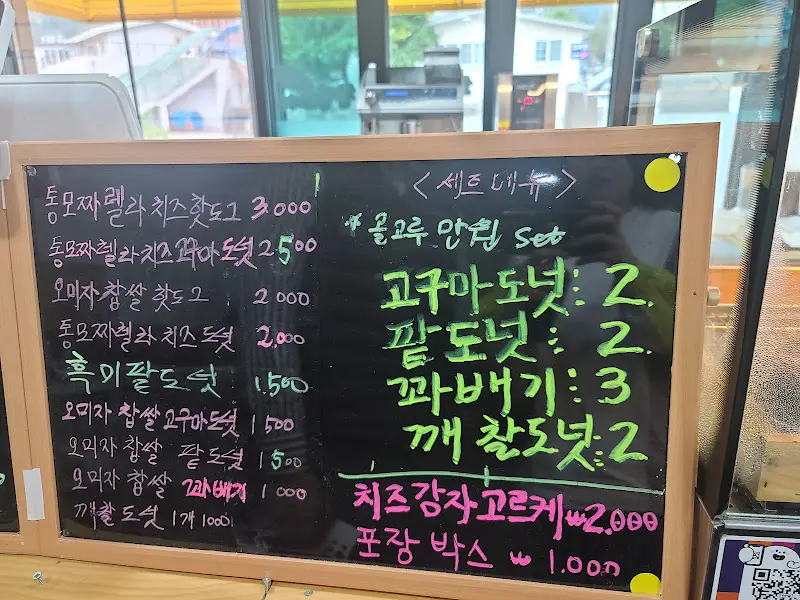 통모짜렐라치즈핫도그 3.000
통모짜렐라치즈꽈마도넛 2500
오미자 찹쌀 핫도그 2000
통모짜렐라 치즈 도넛 2,000
흑미팥도넛 1.500
오미자 찹쌀고구마도넛 1500
오미자 찹쌀 팥도넛 1500
오미자 찹쌀 꽈배기 1000
깨찰도넛 1개 1000
<세트메뉴>
* 골고루 만원 set
고구마도넛: 2.
팥도넛: 2.
꽈배기: 3
깨찰도넛: 2
치즈감자고르케 ₩2.000
포장박스 ₩ 1.000